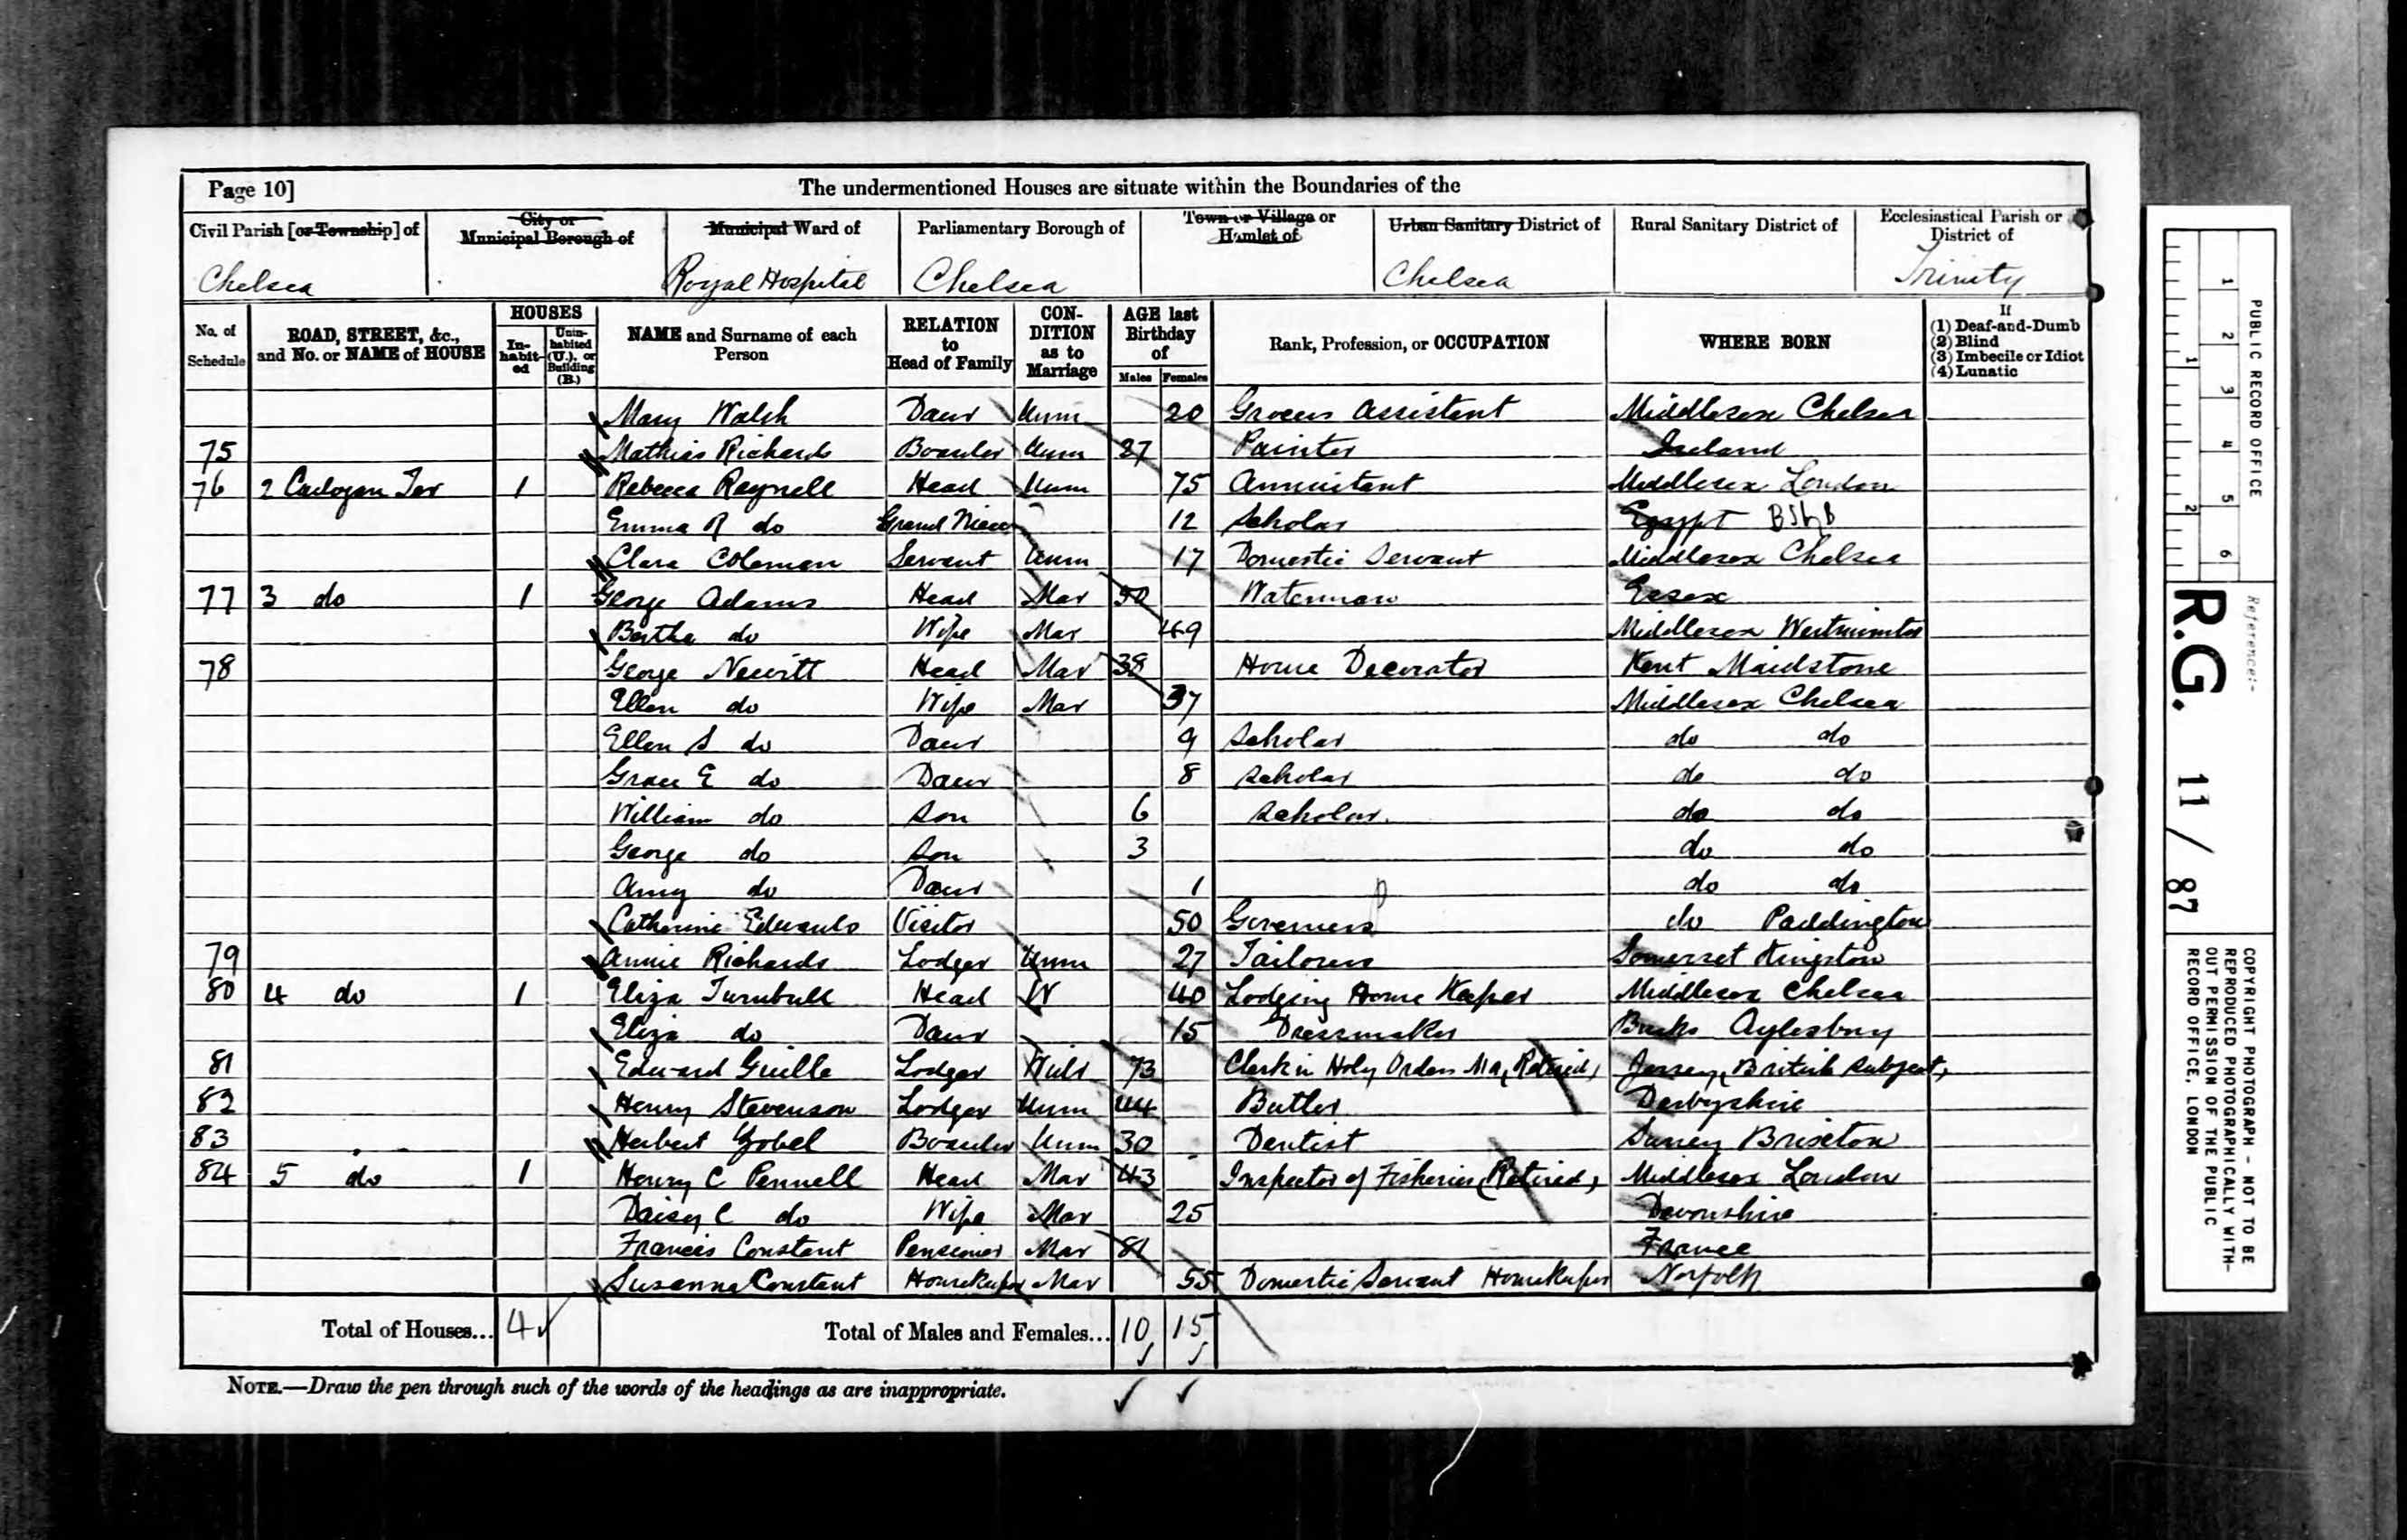 Page 10] The undermentioned Houses are situate within the Boundaries of the
Civil Parish [or Township] of City or Municipal Borough of Municipal Ward of Parliamentary Borough of Town or Village or Hamlet of Urban Sanitary District of Rural Sanitary District of Ecclesiastical Parish or District of
Chelsea Royal Hospital Chelsea Chelsea Trinity
No. of Schedule ROAD, STREET, &c., and No. or NAME of HOUSE HOUSES In-habit-ed Unin-habited (U.), or Building (B.) NAME and Surname of each Person RELATION to Head of Family CON-DITION as to Marriage AGE last Birthday of Males Females Rank, Profession, or OCCUPATION WHERE BORN If (1) Deaf-and-Dumb (2) Blind (3) Imbecile or Idiot (4) Lunatic
Mary Walsh Daur Unm 20 Grocers Assistant Middlesex Chelsea
75 Mathias Richards Boarder Unm 27 Painter Ireland
76 2 Cadogan Ter 1 Rebecca Reynell Head Unm 75 Annuitant Middlesex London
Emma R do Grand Niece 12 Scholar Egypt
Clara Coleman Servant Unm 17 Domestic Servant Middlesex Chelsea
77 3 do 1 George Adams Head Mar 50 Waterman Essex
Bertha do Wife Mar 49 Middlesex Westminster
78 George Newitt Head Mar 38 House Decorator Kent Maidstone
Ellen do Wife Mar 37 Middlesex Chelsea
Ellen S do Daur 9 Scholar do do
Grace E do Daur 8 Scholar do do
William do Son 6 Scholar do do
George do Son 3 do do
Amy do Daur 1 do do
Catherine Edwards Visitor 50 Governess do Paddington
79 Annie Richards Lodger Unm 27 Tailoress Somerset Kingston
80 4 do 1 Eliza Turnbull Head W 40 Lodging House Keeper Middlesex Chelsea
Eliza do Daur 15 Dressmaker Bucks Aylesbury
81 Edward Guille Lodger Widr 73 Clerk in Holy Orders MA, (Retired) Jersey, British Subject,
82 Henry Stevenson Lodger Unm 44 Butler Derbyshire
83 Herbert Zobel Boarder Unm 30 Dentist Surrey Brixton
84 5 do 1 Henry C Pennell Head Mar 43 Inspector of Fisheries (Retired) Middlesex London
Daisy C do Wife Mar 25 Devonshire
Francis Constant Pensioner Mar 81 France
Susanna Constant Housekeeper Mar 55 Domestic Servant Housekeeper Norfolk
Total of Houses... 4 Total of Males and Females... 10 15
NOTE.—Draw the pen through such of the words of the headings as are inappropriate.
PUBLIC RECORD OFFICE
1 2 3 4 5 6
1 2
Reference:-
R.G. 11 / 87
COPYRIGHT PHOTOGRAPH - NOT TO BE
REPRODUCED PHOTOGRAPHICALLY WITH-
OUT PERMISSION OF THE PUBLIC
RECORD OFFICE, LONDON